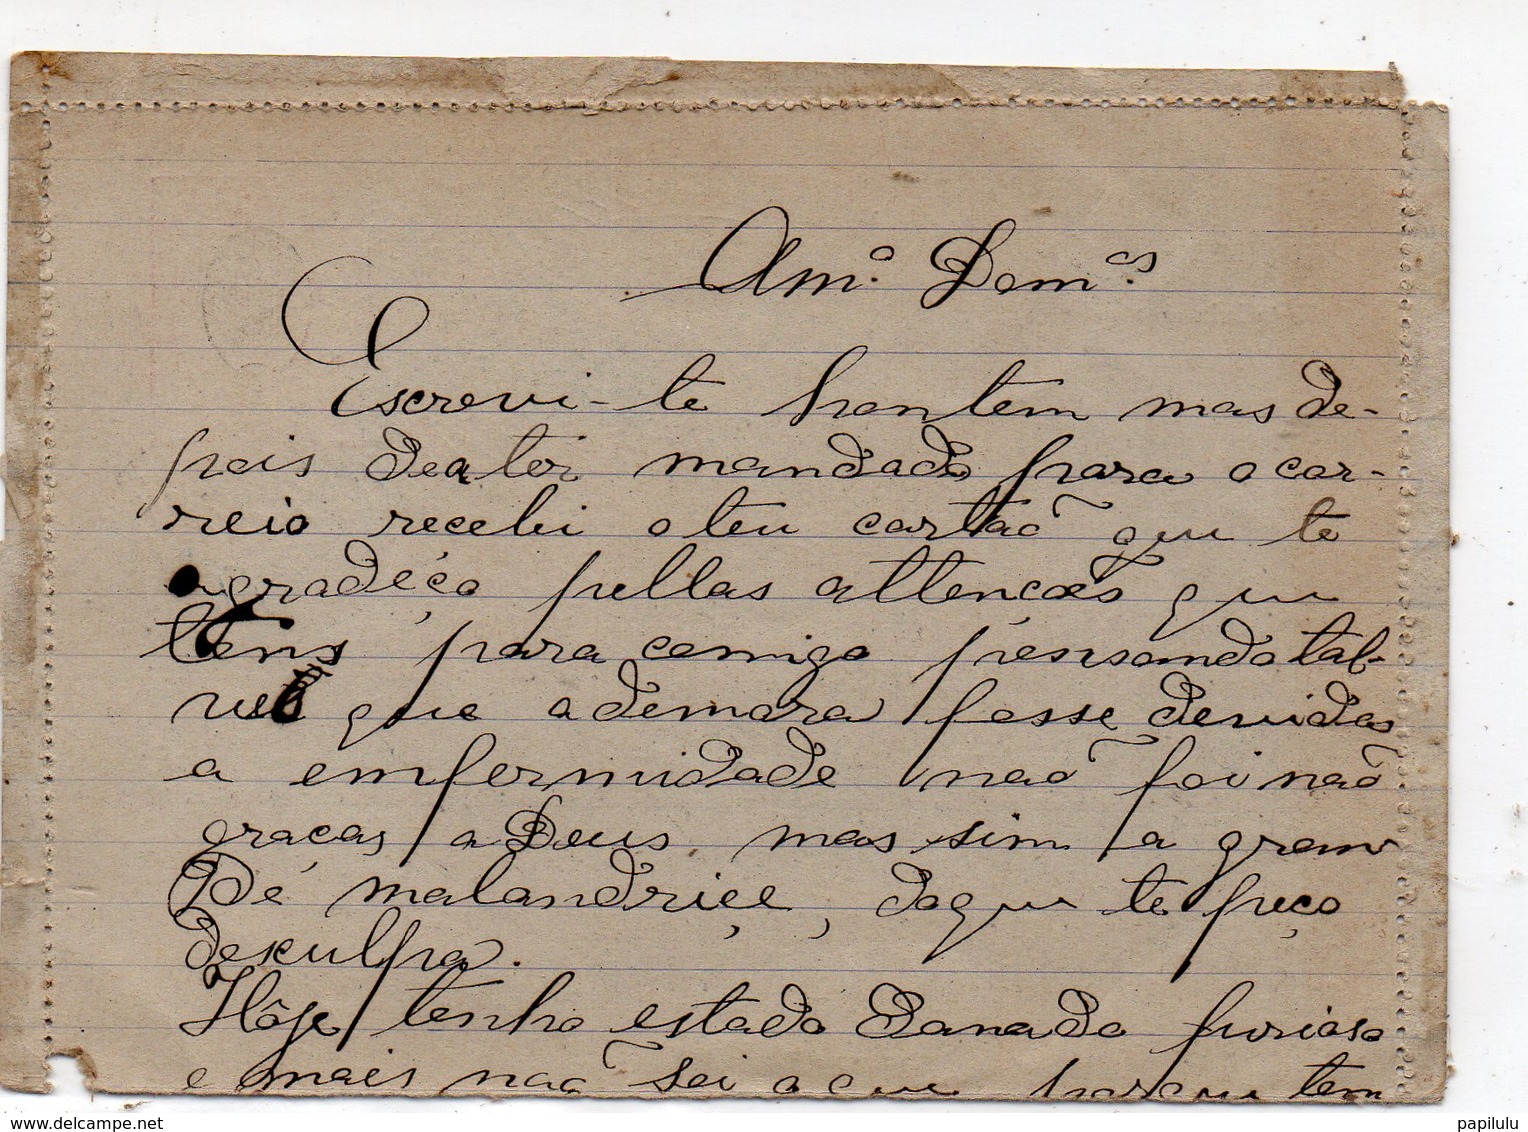 Am.º Dom.os
Escrevi-te hontem mas de-
pois de a ter mandado para o cor-
reio recebi o teu cartão que te
agradeço pellas attenções que
tens para comigo pensando tal-
vez que a demora fosse devidas
a emfermidade não foi não
graças a Deus mas sim a gran
De malandriçe, do que te peço
desculpa.
Hôje tenho estado Danado furioso
e mais não sei o que porque tem
delcampe.net
papilulu